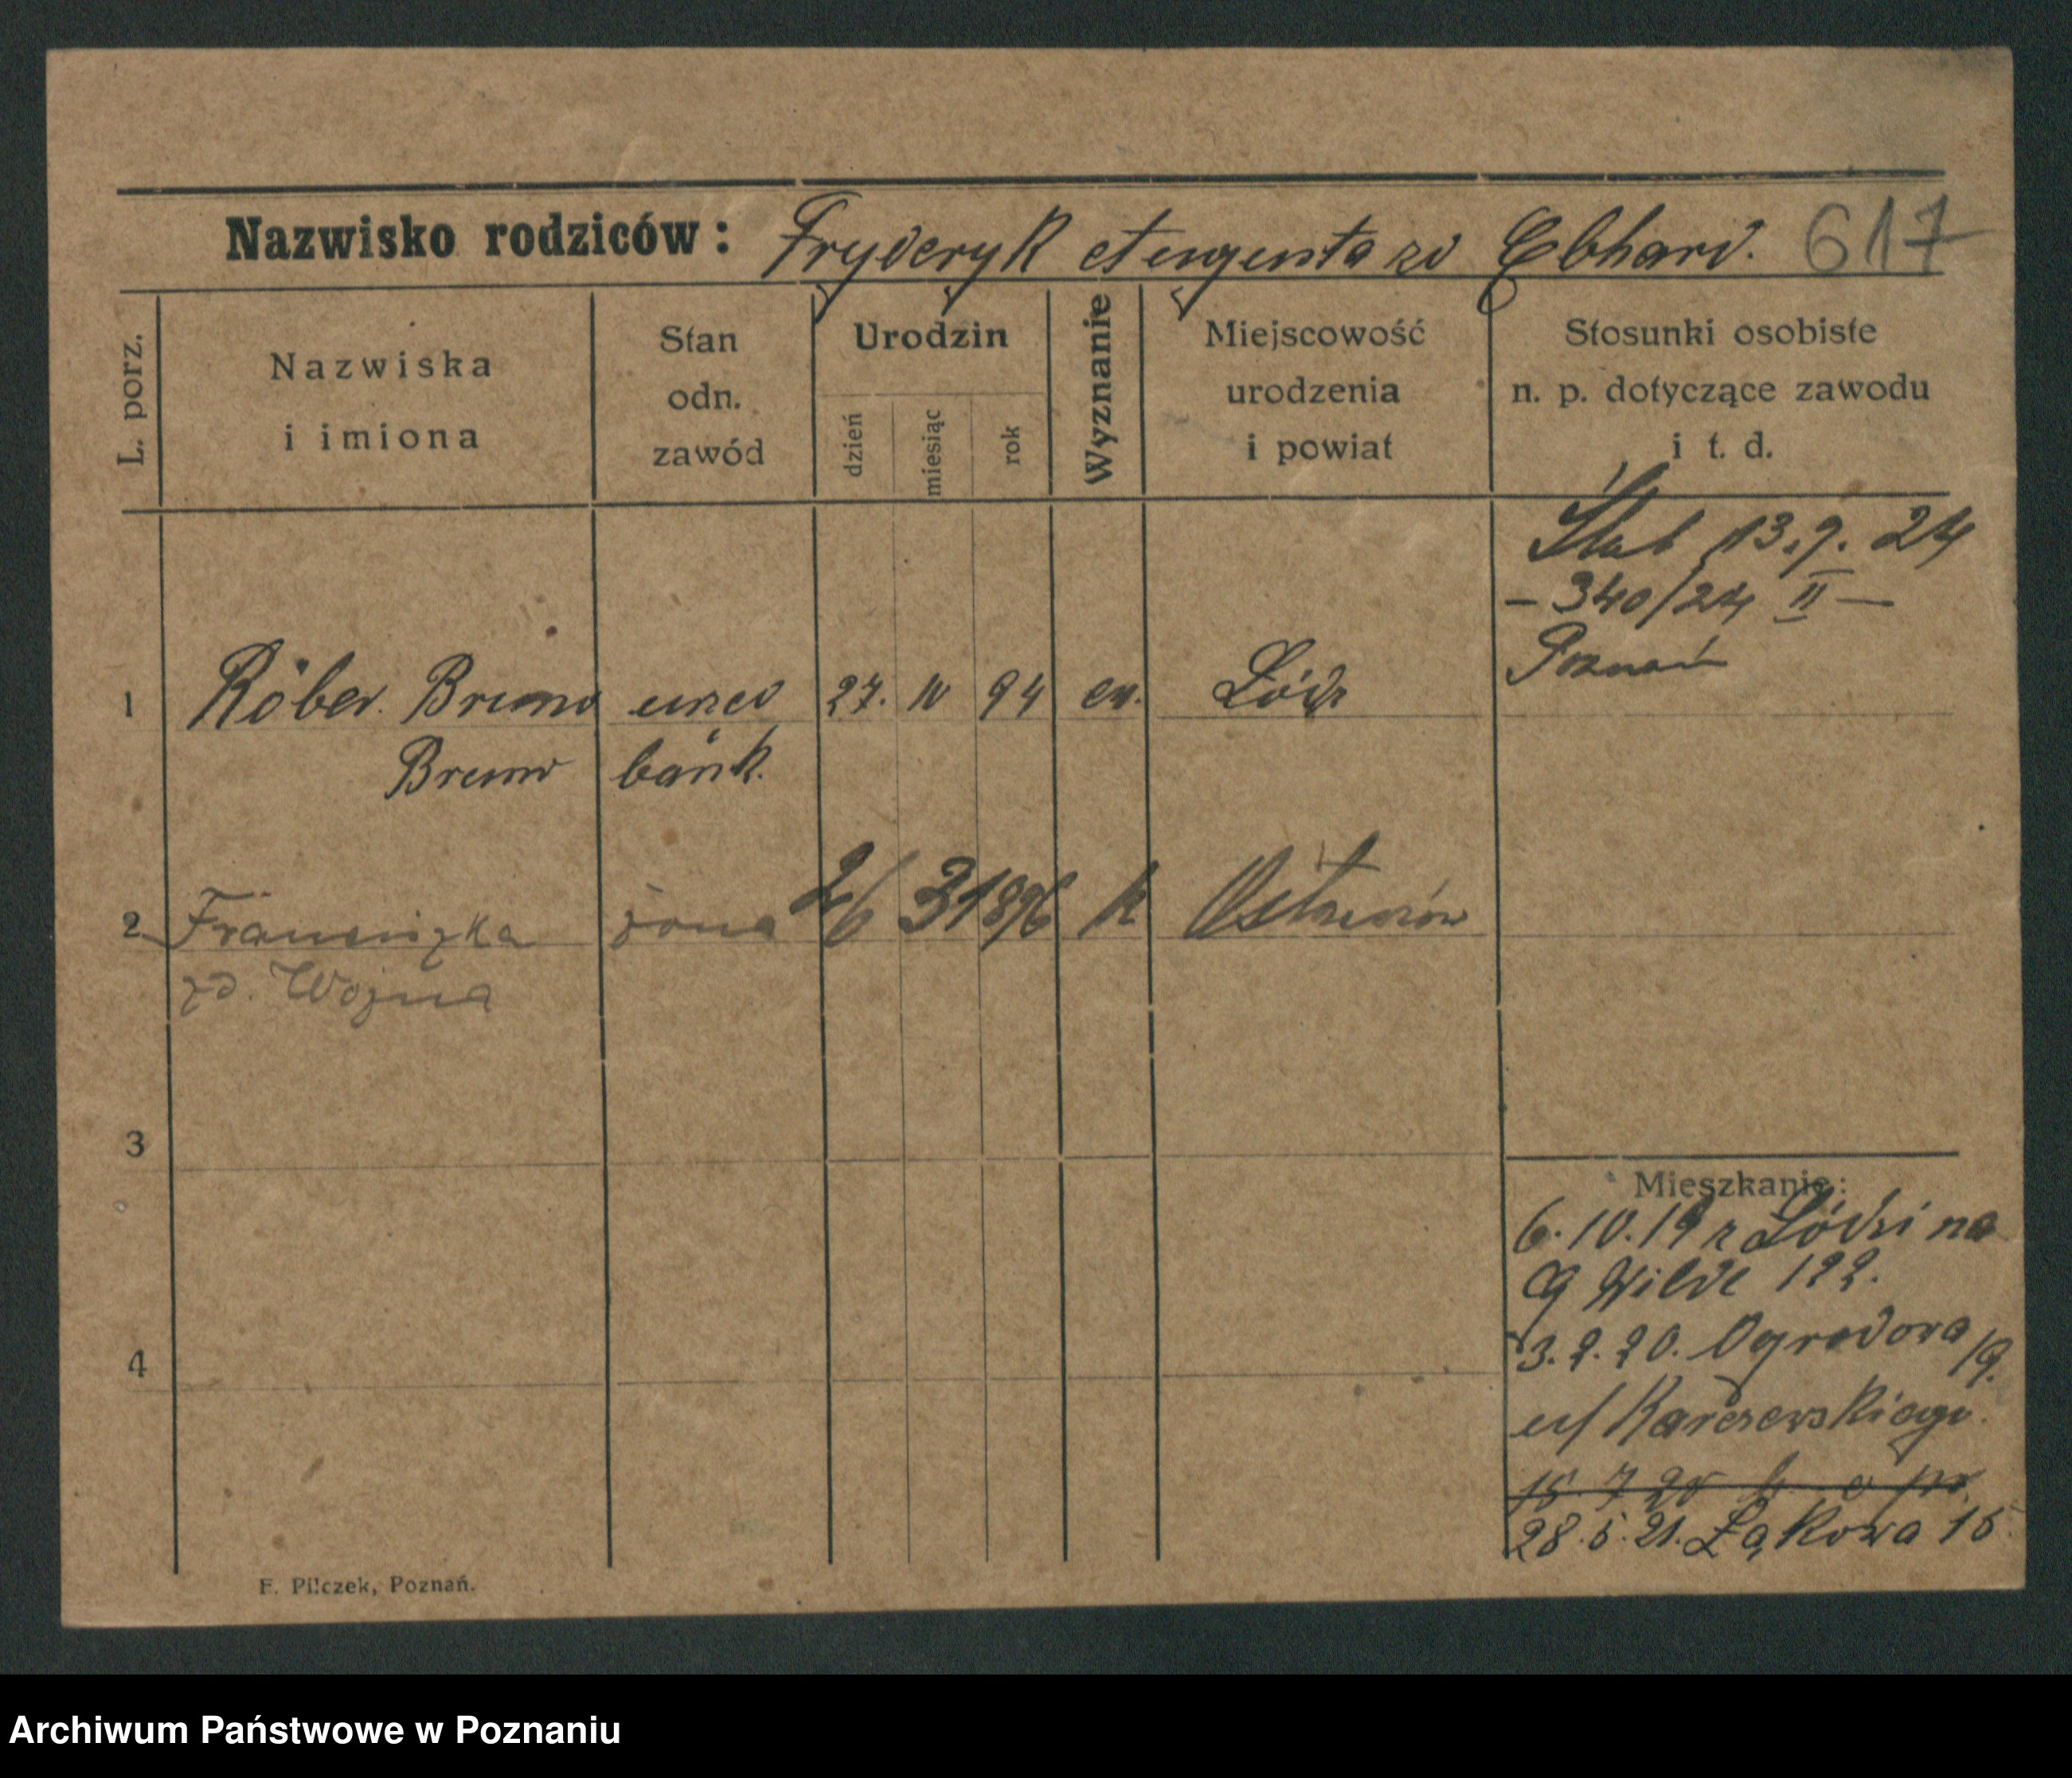 Nazwisko rodziców: Fryderyk Augusta zd Ebhard. 617
L. porz.
Nazwiska
i imiona
Stan
odn.
zawód
Urodzin
dzień
miesiąc
rok
Wyznanie
Miejscowość
urodzenia
i powiat
Stosunki osobiste
n. p. dotyczące zawodu
i t. d.
Ślub 13.9. 24
– 340/24 II –
Poznań
1 Röber Bruno urzed 27. IV 94 ew. Łódź
Bruno bank.
2 Franciszka żona 26 3 1896 k
zd. Wojna
3
4
Mieszkanie:
6.10.19 z Łodzi na
G Wilde 122.
3.2.20. Ogrodowa 19.
u/ Karczewskiego.
15 7 20
28.5.21. Łąkowa 15
F. Pilczek, Poznań.
Archiwum Państwowe w Poznaniu